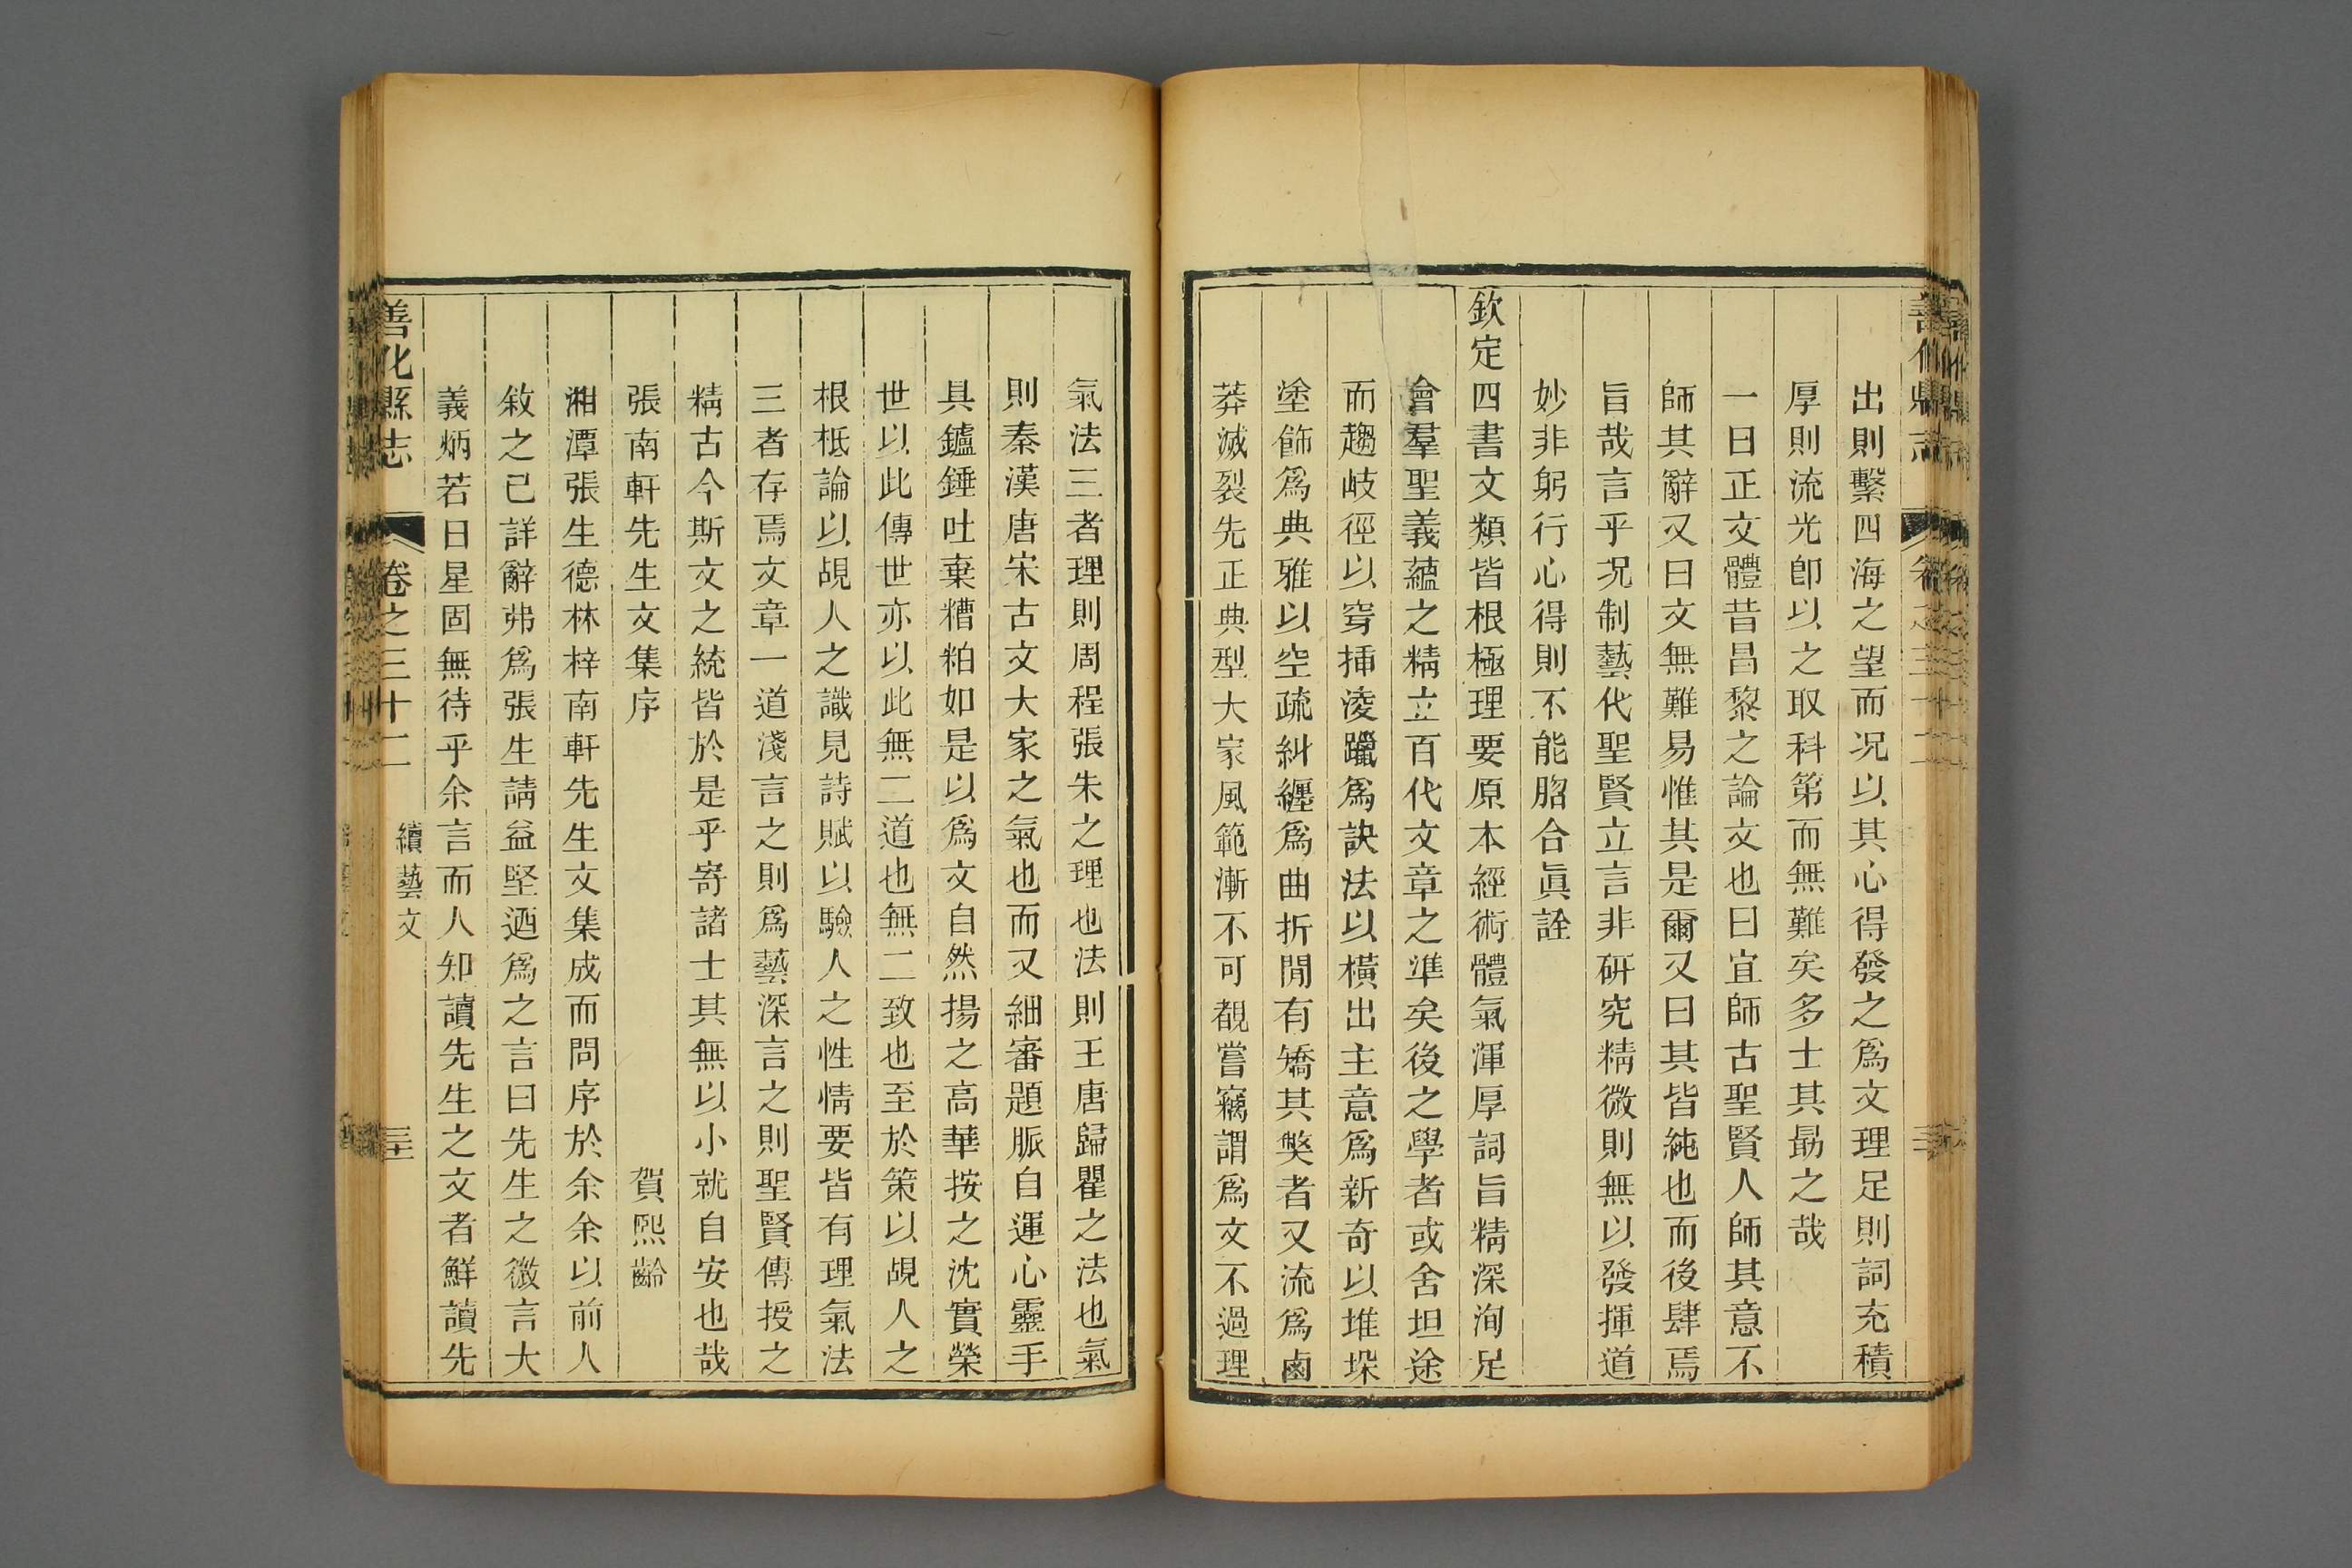 出則繫四海之望而况以其心得發之爲文理足則詞充積
厚則流光卽以之取科第而無難矣多士其勗之哉
一曰正文體昔昌黎之論文也曰宜師古聖賢人師其意不
師其辭又曰文無難易惟其是爾又曰其皆純也而後肆焉
旨哉言乎况制藝代聖賢立言非硏究精微則無以發揮道
妙非躬行心得則不能脗合眞詮
欽定四書文類皆根極理要原本經術體氣渾厚詞旨精深洵足
會羣聖義蘊之精立百代文章之準矣後之學者或舍坦途
而趨岐徑以穿揷淩躐爲訣法以橫出主意爲新奇以堆垜
塗飾爲典雅以空疏糾纒爲曲折閒有矯其獘者又流爲鹵
莽滅裂先正典型大家風範漸不可覩嘗竊謂爲文不過理
氣法三者理則周程張朱之理也法則王唐歸瞿之法也氣
則秦漢唐宋古文大家之氣也而又細審題脈自運心靈手
具鑪錘吐棄糟粕如是以爲文自然揚之高華按之沈實榮
世以此傳世亦以此無二道也無二致也至於策以覘人之
根柢論以覘人之識見詩賦以驗人之性情要皆有理氣法
三者存焉文章一道淺言之則爲藝深言之則聖賢傳授之
精古今斯文之統皆於是乎寄諸士其無以小就自安也哉
張南軒先生文集序 賀熙齡
湘潭張生德林梓南軒先生文集成而問序於余余以前人
敘之已詳辭弗爲張生請益堅迺爲之言曰先生之微言大
義炳若日星固無待乎余言而人知讀先生之文者鮮讀先
善化縣志 卷之三十二 續藝文 三十